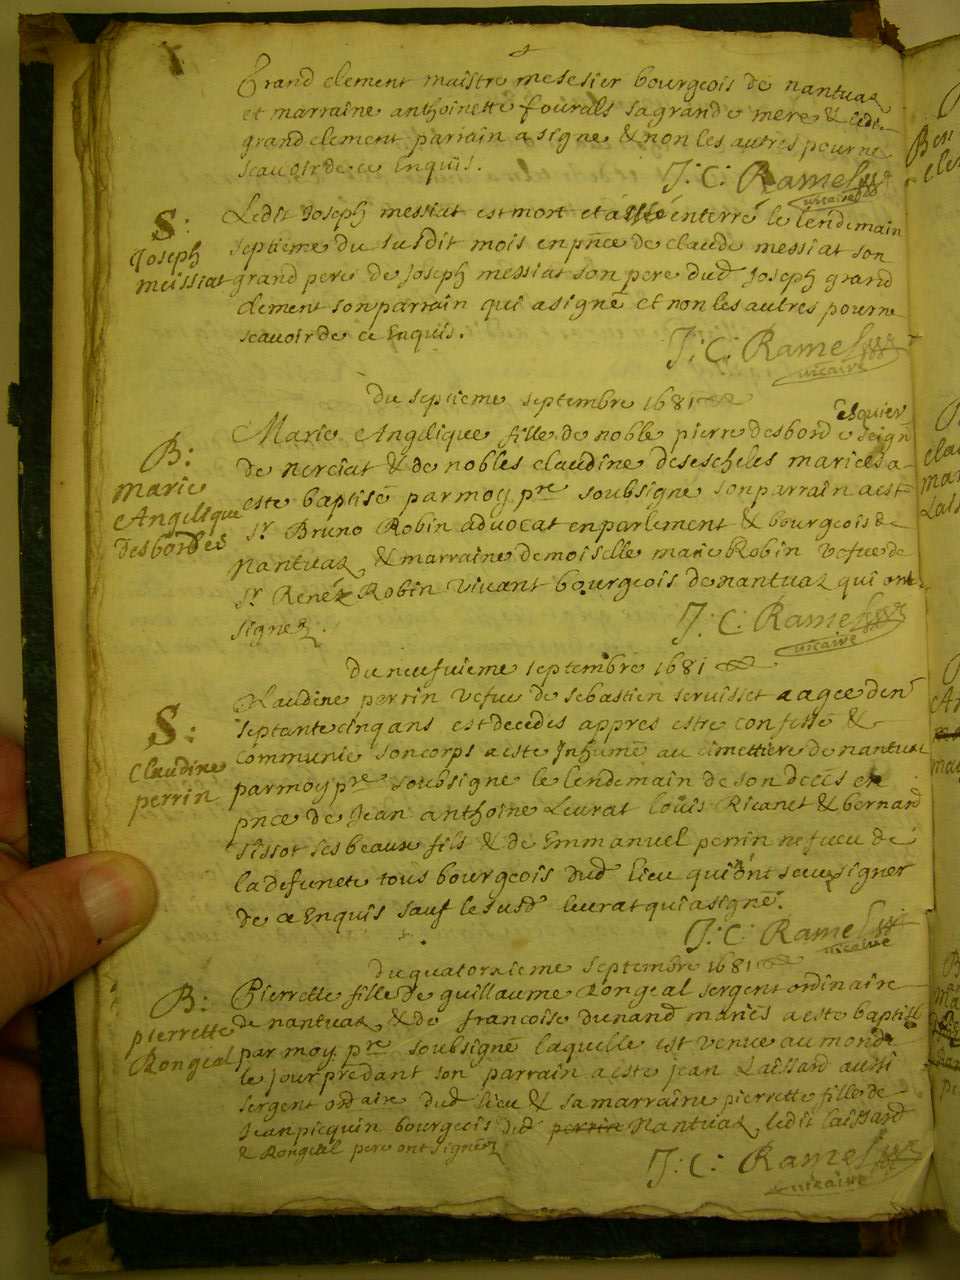 Grand clement maistre mesesier bourgeois de nantuaz
et marraine anthoinette fourals sa grande mere & ledt
grand clement parrain a signe & non les autres pour ne
scavoir de ce Enquis.
J: C: Ramel
vicaire
S:
Joseph
messiat
Ledit Joseph messiat est mort et a esté enterré le lendemain
septieme du susdit mois en pnce de claude messiat son
grand pere de Joseph messiat son pere dud Joseph grand
clement son parrain qui a signé et non les autres pour ne
scavoir de ce Enquis.
J: C: Ramel
vicaire
Du septieme septembre 1681
B:
Marie
Angelique
Desbordes
Marie Angelique fille de noble pierre desborde esquier seign
de nerciat & de nobles claudine desescheles mariees a
este baptisé par moy pre soubsigné son parrain a est
Sr. Bruno Robin advocat en parlement & bourgeois de
nantuaz, & marraine demoiselle marie Robin vefue de
Sr. René Robin vivant bourgeois de nantuaz qui ont
signez.
J: C: Ramel
vicaire
Du neufuieme septembre 1681
S:
Claudine
perrin
Claudine perrin vefue de sebastien seruisset aagee den
septante cinq ans est decedés appres estre confessé &
communié son corps a esté Inhumé au cimettiere de nantuat
par moy pre soubsigné le lendemain de son decés en
pnce de Jean anthoine Leurat loüis Ricanet & bernard
sissot ses beaux fils & de Emmanuel perrin nefueu de
la defunete tous bourgeois dud. lieu qui n'ont sceu signer
de ce Enquis sauf le susd leurat qui a signé.
J: C: Ramel
vicaire
Du quatorzieme septembre 1681
B:
pierrette
Rongeal
Pierrette fille de guillaume Rongeal sergent ordinaire
de nantuaz, & de francoise dunand mariés a esté baptisé
par moy pre soubsigné laquelle est venue au monde
le jour prēdant son parrain a esté jean Laissard aussi
sergent ordaire dud lieu & sa marraine pierrette fille de
Jean picquin bourgeois dud perrin nantuaz, ledit laissard
& Rongeal pere ont signéz
J: C: Ramel
vicaire